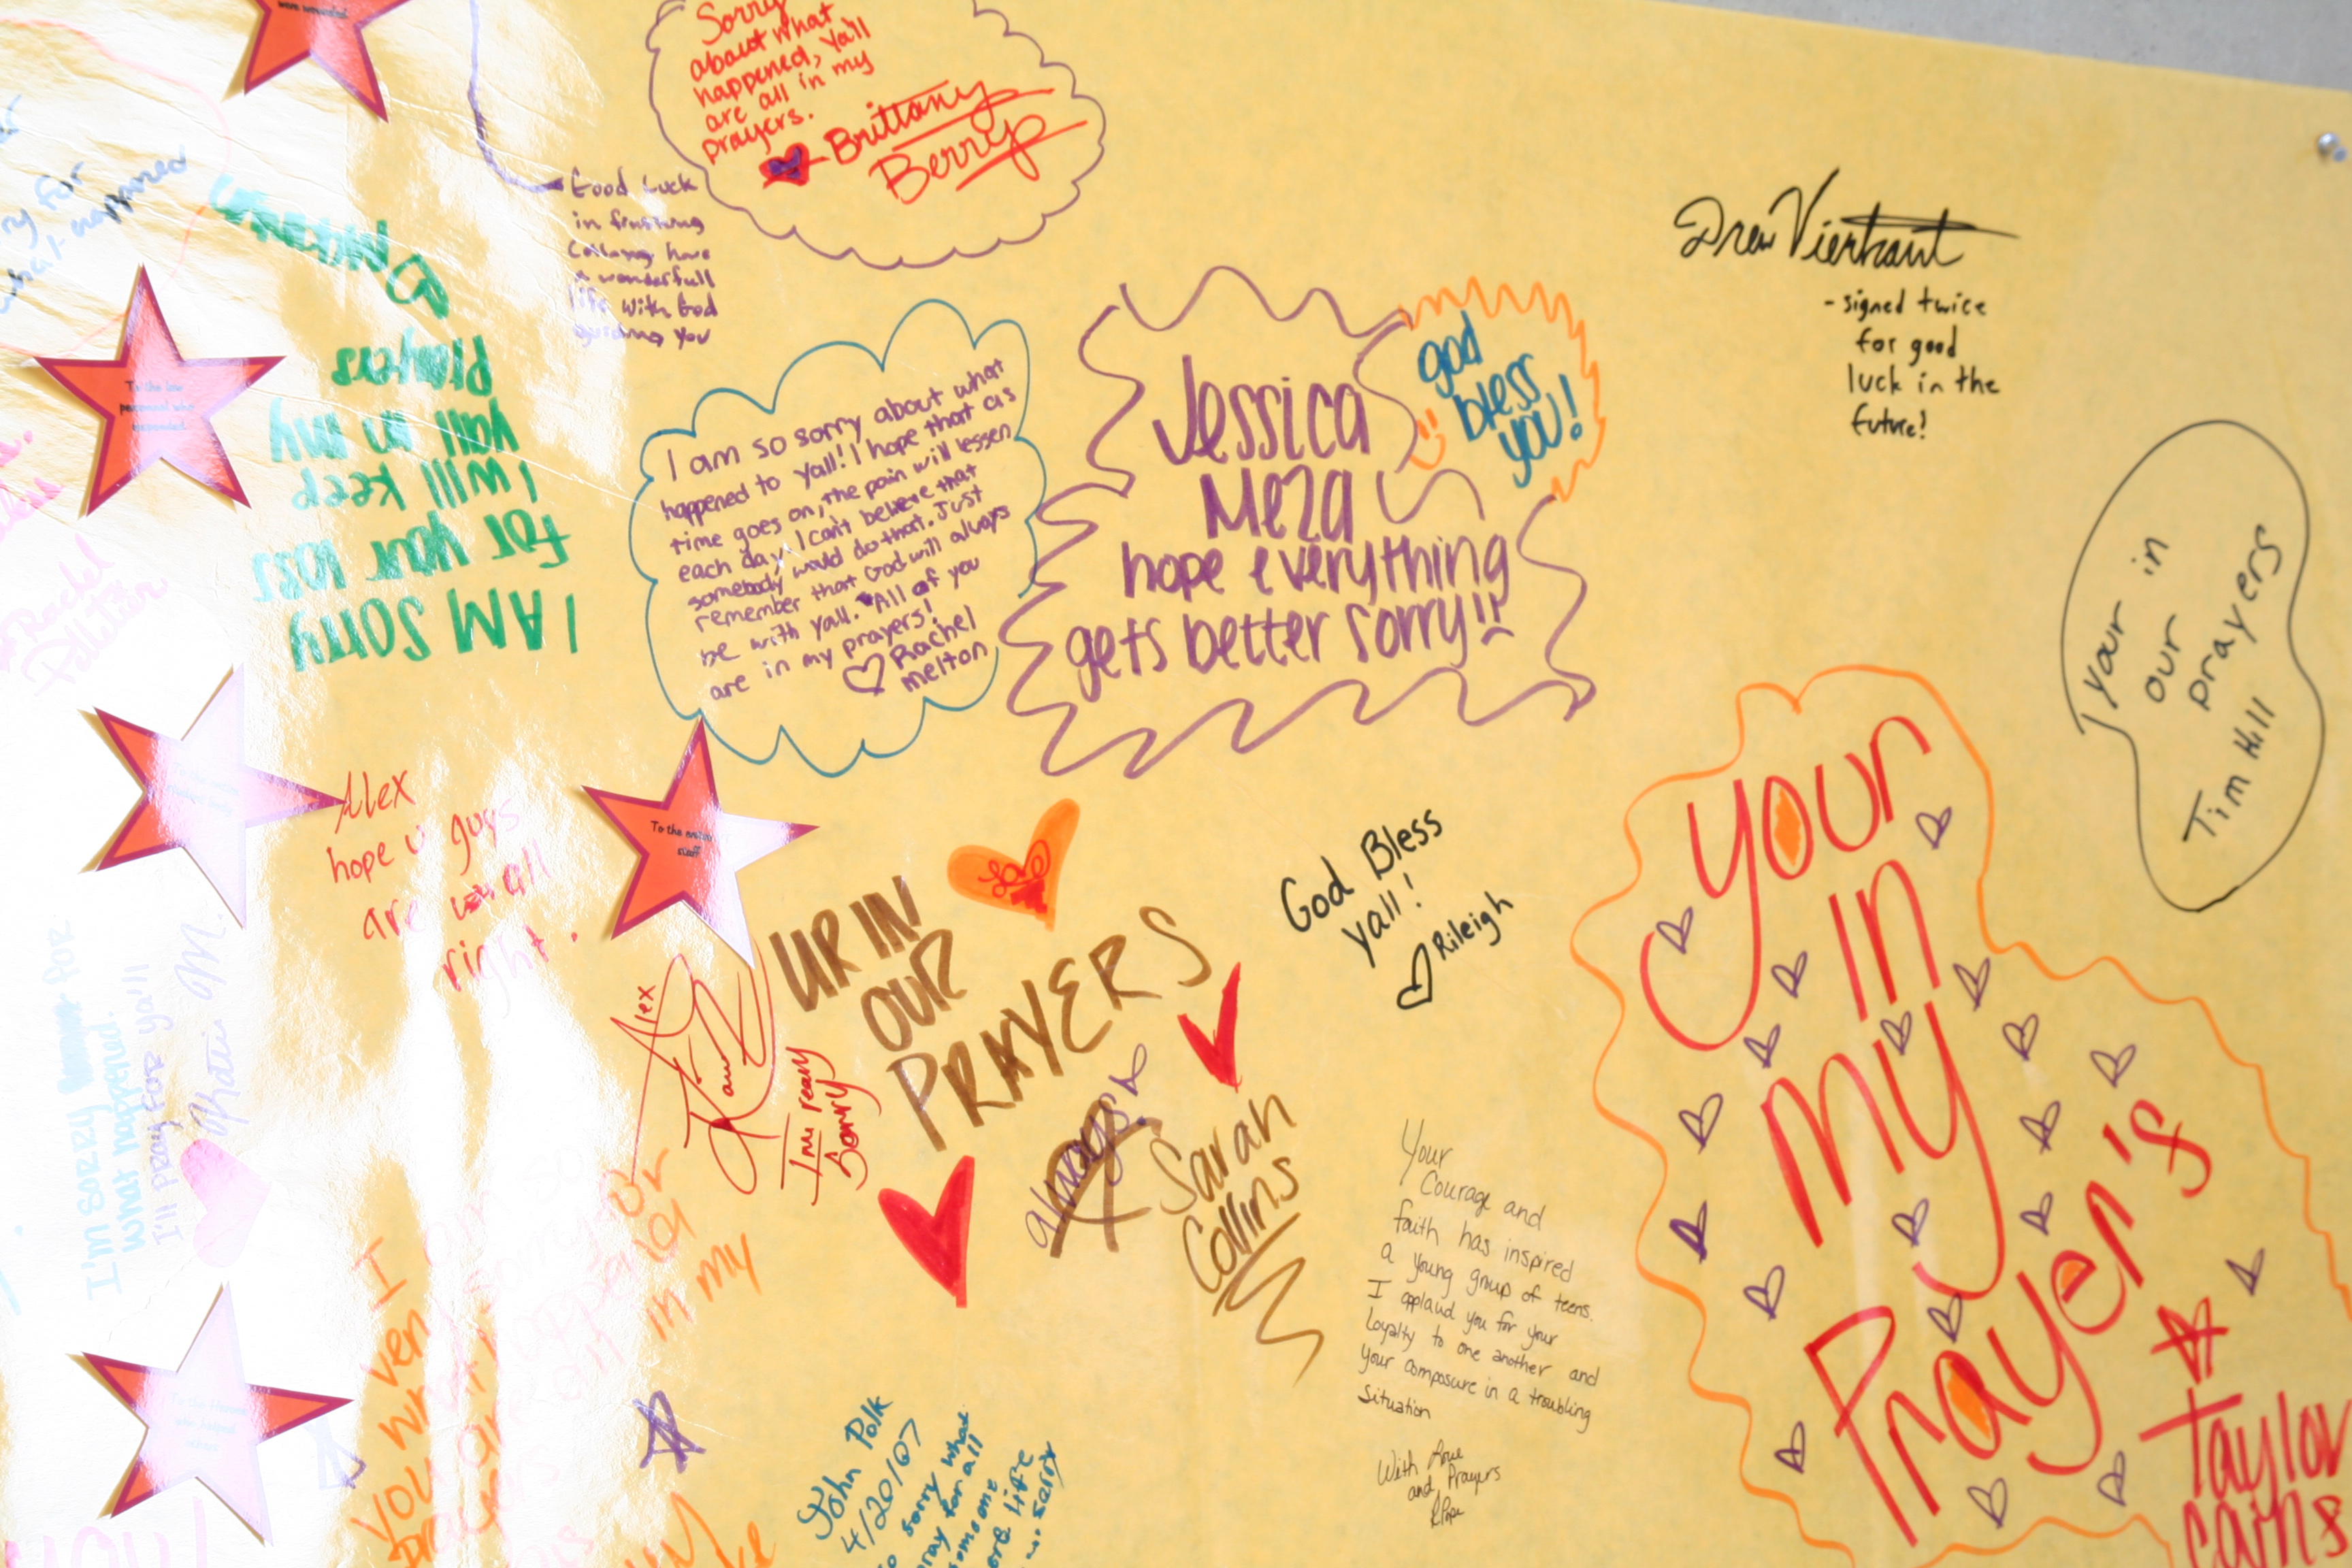 Sorry
about what
happened, Ya'll
are all in my
prayers.
Brittany
Berry
Good Luck
in finishing
have
a wonderfull
life with God
guiding you
Drew Vierkant
- signed twice
for good
luck in the
future!
what happened
Miranda
I AM Sorry
for your loss
I will keep
yall in my
Prayers
To the law
personnel who
responded
I am so sorry about what
happened to yall! I hope that as
time goes on, the pain will lessen
each day. I can't believe that
somebody would do that. Just
remember that God will always
be with yall. All of you
are in my prayers!
Rachel
melton
Jessica
Meza
hope everything
gets better sorry!!
god
bless
you!
your in
our
prayers
Tim Hill
Alex
hope u guys
are all
right.
To the entire
staff
Love
UR IN
OUR
PRAYERS
always!
Sarah
Collins
God Bless
yall!
Rileigh
Alex
I'm really
Sorry
I'm SORRY FOR
what happened.
I'll Pray FOR ya'll
Katie M.
your
in
my
Prayer's
Taylor
Carns
Your
Courage and
faith has inspired
a young group of teens.
I applaud you for your
loyalty to one another and
your composure in a troubling
situation
With Love
and Prayers
R Pope
I am so
very sorry for
in my
John Polk
4/20/07
sorry what
pray for all
someone
life
sorry